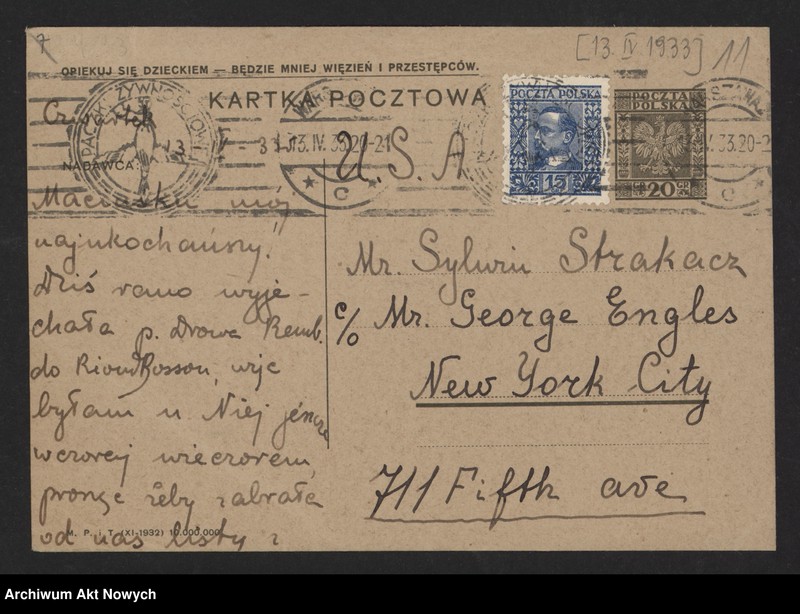 7
[13. IV 1933] 11
OPIEKUJ SIĘ DZIECKIEM — BĘDZIE MNIEJ WIĘZIEŃ I PRZESTĘPCÓW.
KARTKA POCZTOWA
POCZTA POLSKA
15
POCZTA
POLSKA
GR 20 GR
13. IV. 33. 20-21
C
V. 33. 20-2
C
Czwartek
NADAWCA:
U. S. A.
Maciusku mój
najukochańszy!
Dziś rano wyje-
chała p. Drowa Remb.
do Riond Bosson, więc
byłam u Niej jeszcze
wczoraj wieczorem,
prosząc żeby zabrała
od nas listy i
Mr. Sylwin Strakacz
c/o Mr. George Engles
New York City
711 Fifth ave
M. P. i T. (XI-1932) 10.000.000
Archiwum Akt Nowych